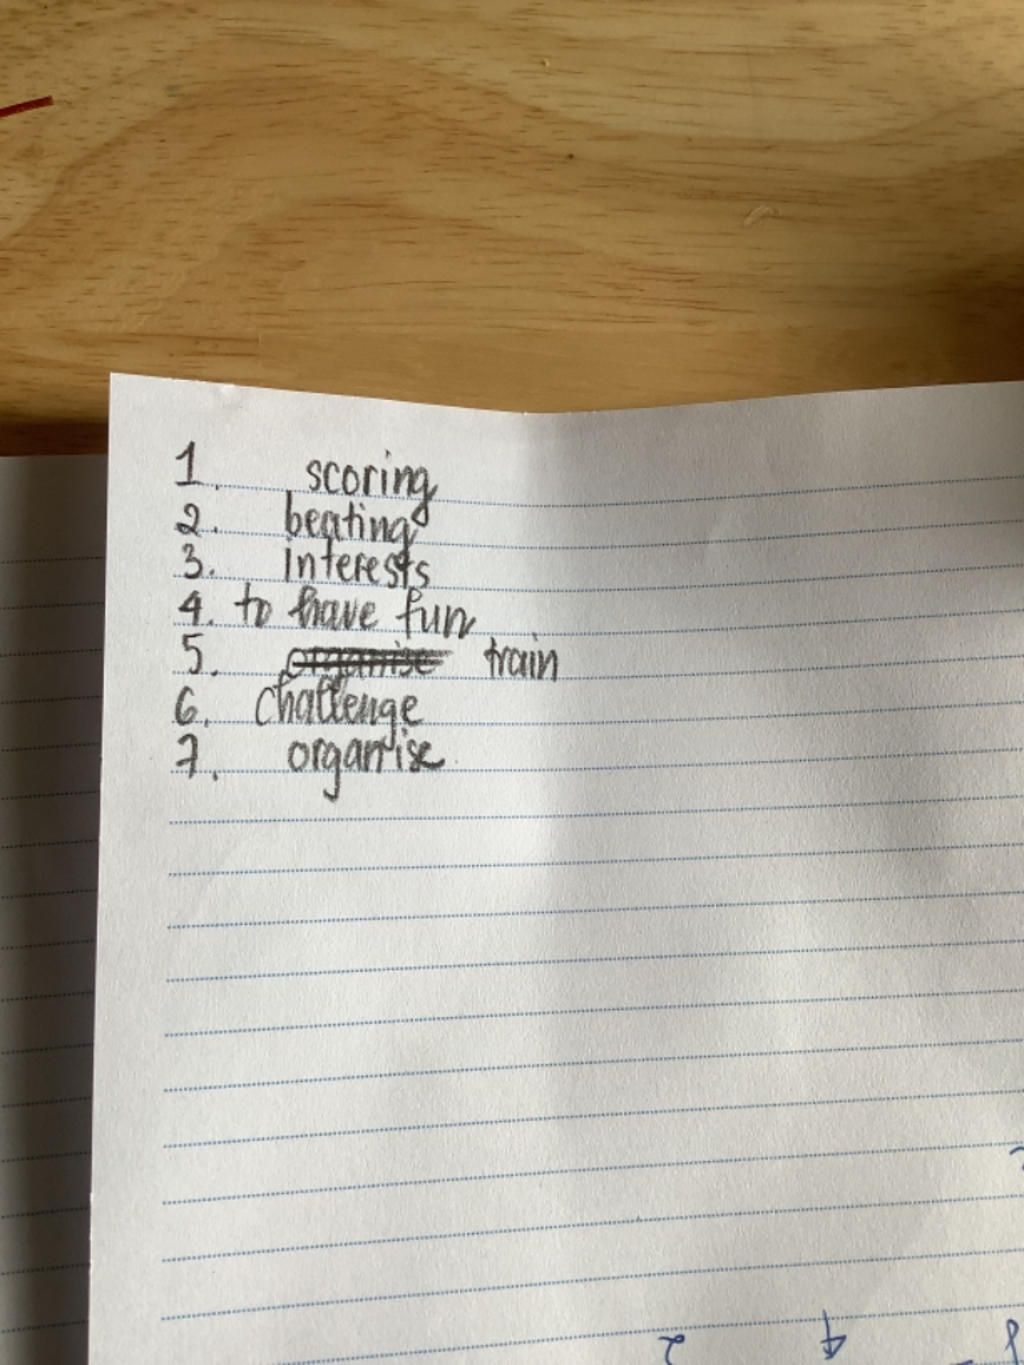 1. scoring
2. beating
3. Interests
4. to have fun
5. organise train
6. challenge
7. organise